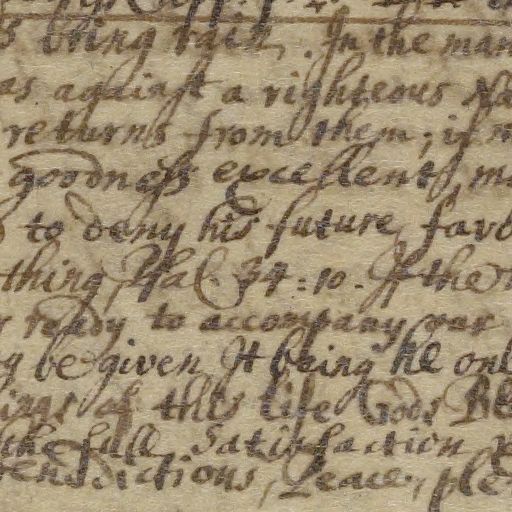 being said, In the man
as against a righteous
returns from them; if
goodness excellent,
to deny his future favo
thing, Psal. 34:10. If the
ready to accompany our
be given It being he onl
ings of this life Gods Bl
the full Satisfaction
endictions, Peace, ple